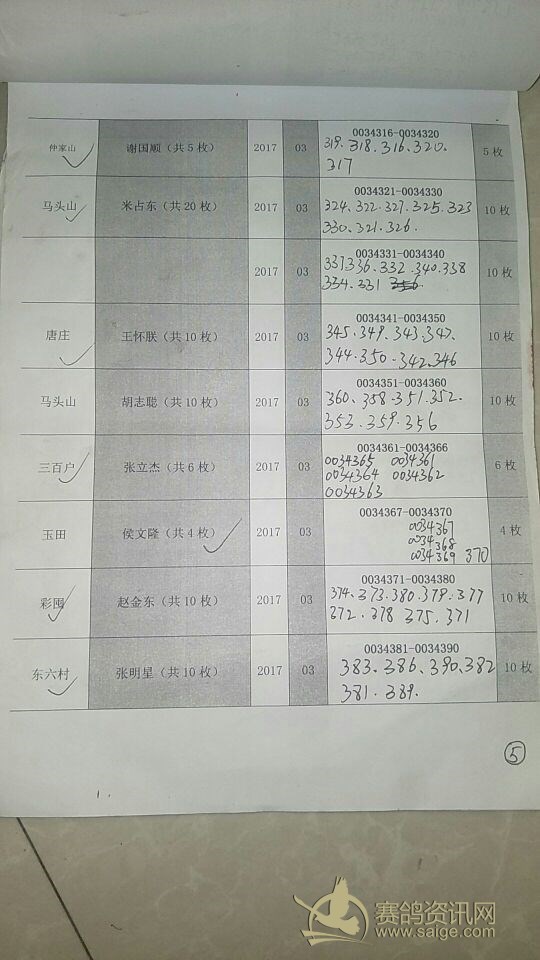 仲家山 谢国顺（共 5 枚） 2017 03 0034316-0034320 5 枚
319. 318. 316. 320.
317
马头山 米占东（共 20 枚） 2017 03 0034321-0034330 10 枚
324. 322. 327. 325. 323
330. 321. 326.
2017 03 0034331-0034340 10 枚
337 336. 332. 340. 338
334. 331
唐庄 王怀朕（共 10 枚） 2017 03 0034341-0034350 10 枚
345. 349. 343. 347.
344. 350. 342. 346
马头山 胡志聪（共 10 枚） 2017 03 0034351-0034360 10 枚
360. 358. 351. 352.
353. 359. 356
三百户 张立杰（共 6 枚） 2017 03 0034361-0034366 6 枚
0034365 0034361
0034364 0034362
0034363
玉田 侯文隆（共 4 枚） 2017 03 0034367-0034370 4 枚
0034367
0034368
0034369 370
彩囤 赵金东（共 10 枚） 2017 03 0034371-0034380 10 枚
374. 373. 380. 379. 377
372. 378 375. 371
东六村 张明星（共 10 枚） 2017 03 0034381-0034390 10 枚
383. 386. 390. 382
381. 389.
5
赛鸽资讯网
www.saige.com